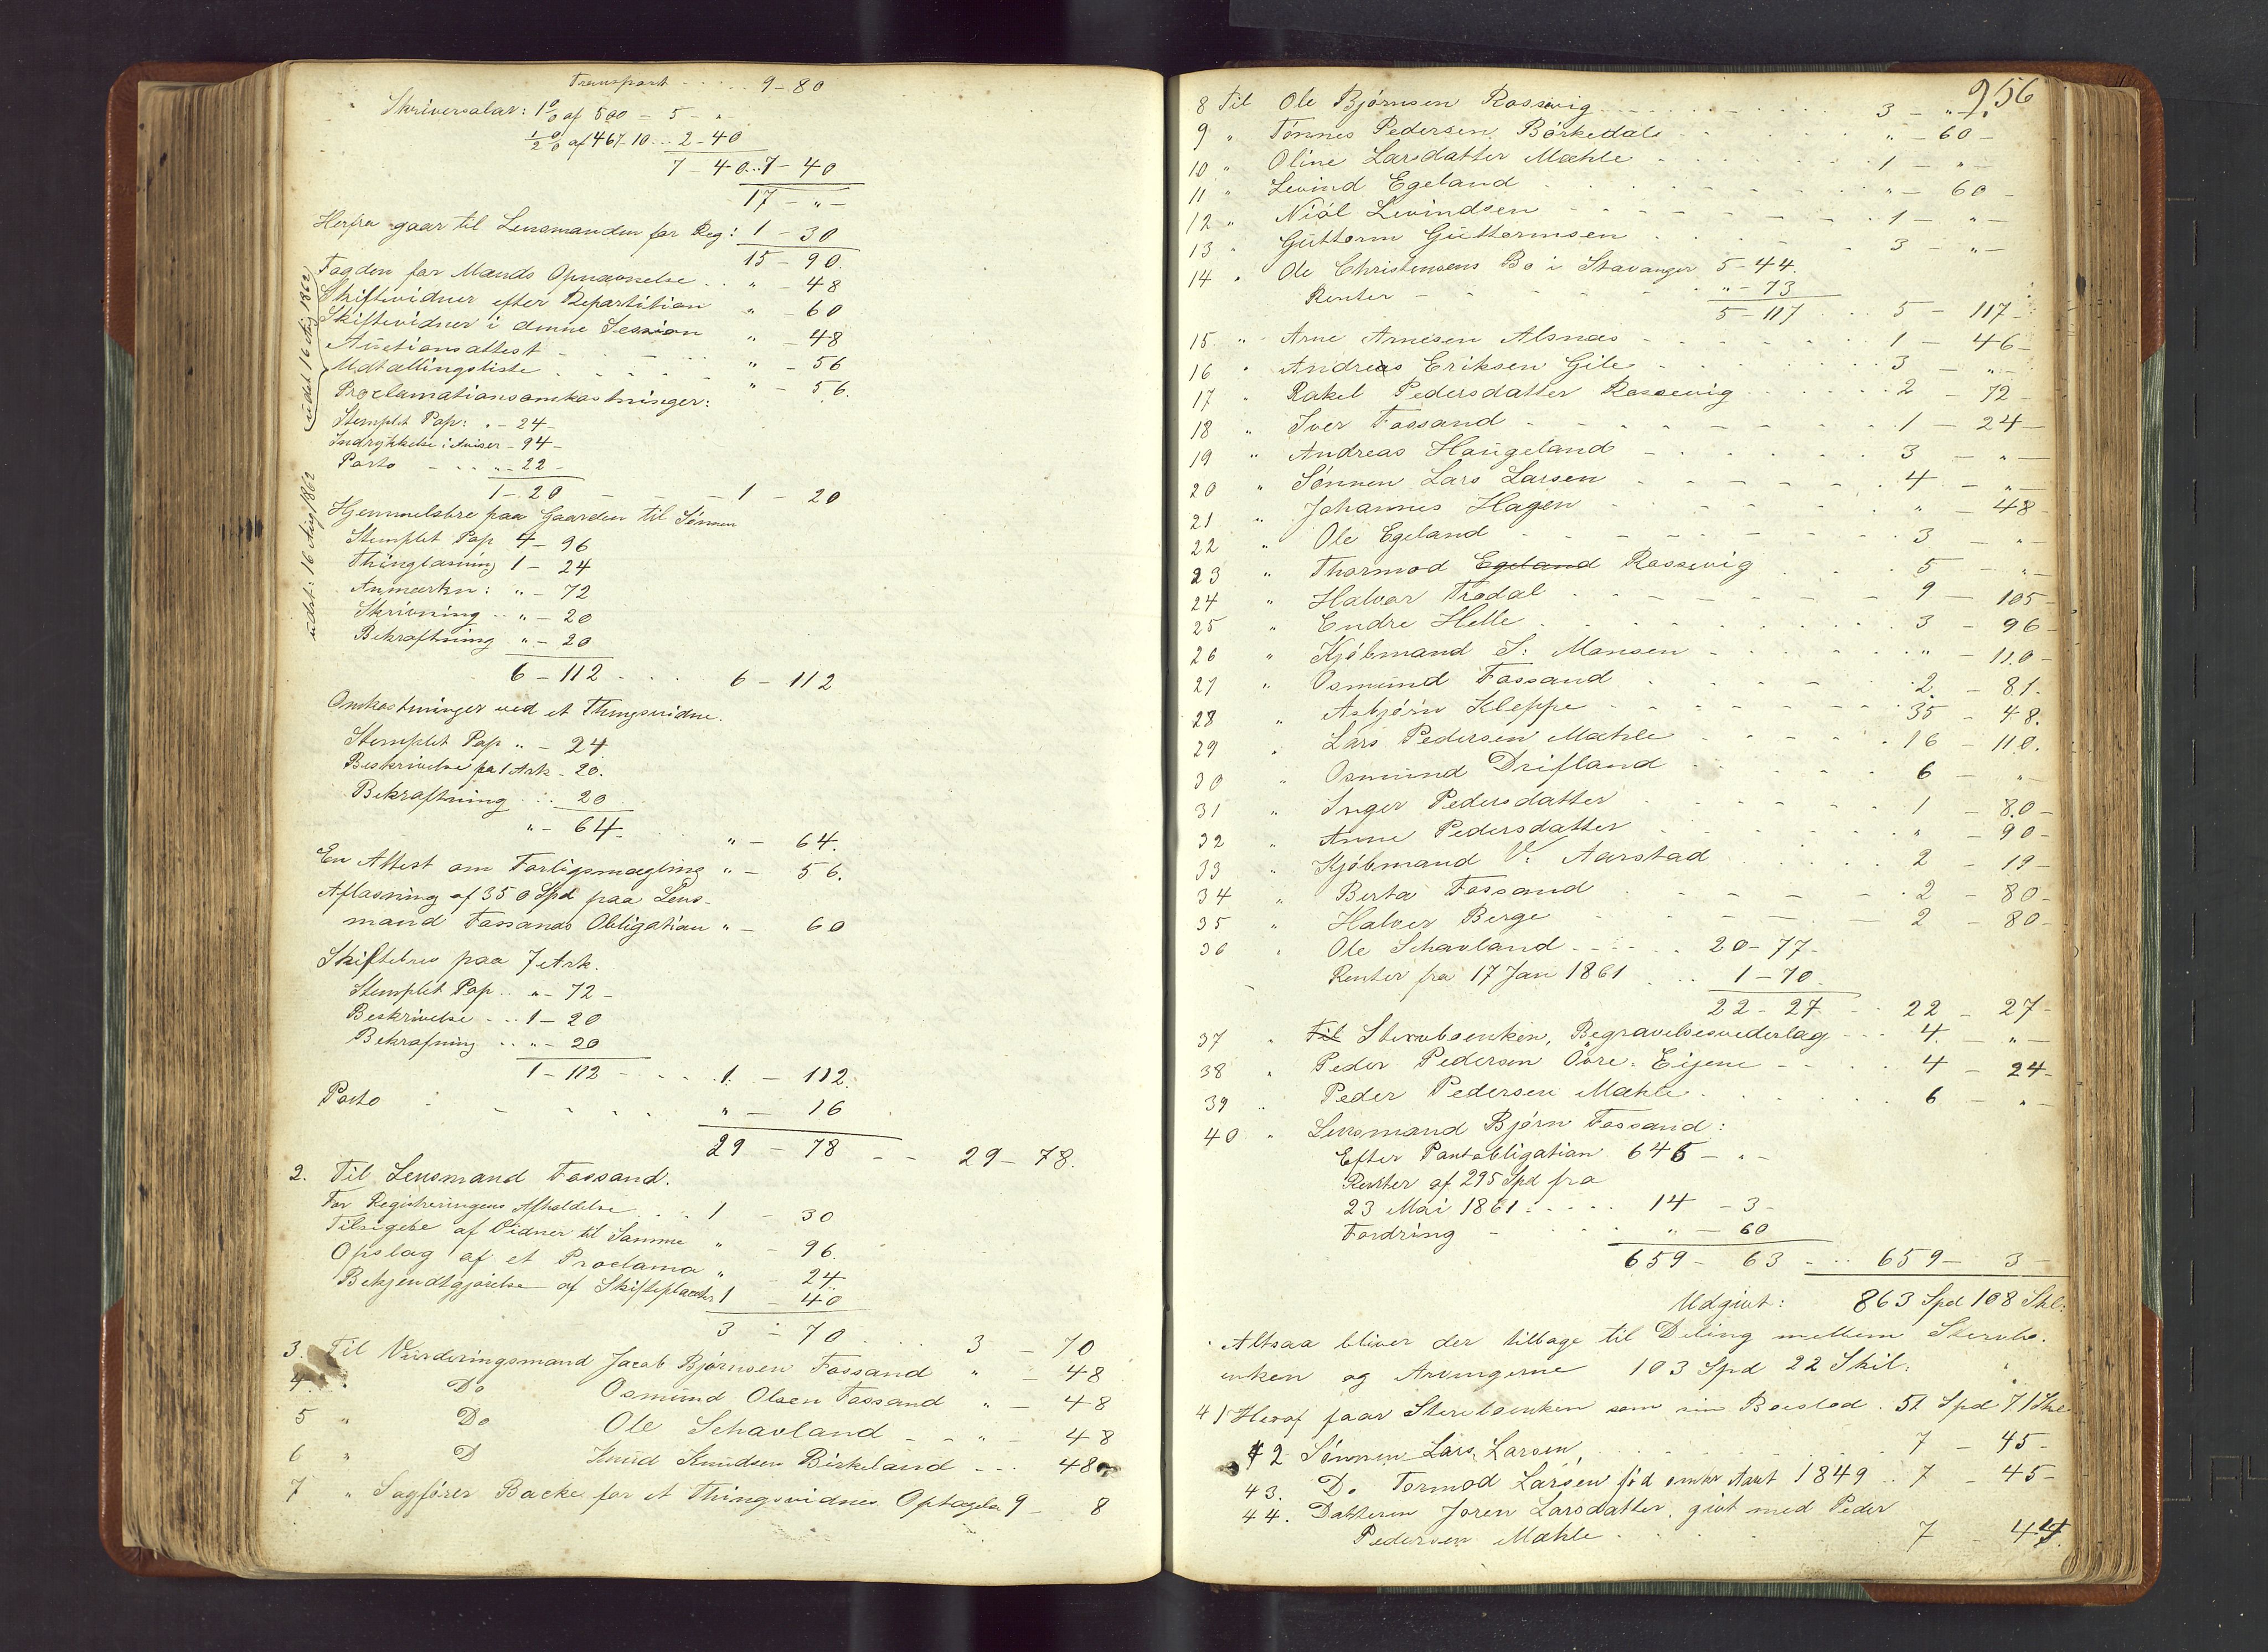 Transport . . . . 9 - 80
Skriversalar: 1 % af 500 - 5 - " -
1/2 % af 467-10 . . 2 - 40
7 - 40 . . 7 - 40
17 - " -
Herfra gaar til Lensmanden for Reg: 1 - 30
15 - 90.
Fogden for Mænds Opnævnelse . . " - 48
Skiftevidner efter Repartition " - 60
Skiftevidner i denne Session " - 48
Auctionsattest - - - - " - 56
Udtællingsliste . . . . . " - 56.
Proclamationsomkostninger:
Stemplet Pap: " - 24 -
Indrykkelse i Aviser - 94 -
Porto - - - " - 22 -
1 - 20 - - - 1 - 20
udst 16 Aug 1862
udst: 16 Aug 1862
Hjemmelsbre paa Gaarden til Sønnen
Stemplet Pap 4 - 96
Thinglæsning 1 - 24
Anmærkn: " - 72
Skrivning . . " - 20
Bekræftning " - 20
6 - 112 . . . . 6 - 112
Omkostninger ved et Thingsvidne.
Stemplet Pap " - 24
Beskrivelse paa 1 Ark - 20.
Bekræftning . . . 20
" - 64. " - 64.
En Attest om Forligsmægling " - 56.
Aflæsning af 350 Spd paa Lens-
mand Fossands Obligation " - 60
Skiftebrev paa 7 Ark.
Stemplet Pap . . " - 72 -
Beskrivelse - . . 1 - 20
Bekræfning . . " - 20
1 - 112 - . . . 1. - 112.
Porto . - - - - " - 16
29 - 78 - - 29 - 78.
2. Til Lensmand Fossand.
For Registreringens Afholdelse . . . 1 - 30
Tilsigelse af Vidner til Samme " - 96.
Opslag af et Proclama " 24
Bekjendtgjørelse af Skifteplacater 1 - 40
3 - 70 . . . 3 - 70
3. Til Vurderingsmand Jacob Bjørnsen Fossand " - 48
4. " Do Osmund Olsen Fossand " - 48
5 " Do Ole Schavland - - " - 48
6 " D Knud Knudsen Birkeland - - - 48
7 " Sagfører Backe for et Thingsvidnes Optagelse 9 - 8
956
8 Til Ole Bjørnsen Rossevig . . . . . 3 - " -
9 " Tønnes Pedersen Børkedals . . . " - 60 -
10 " Oline Larsdatter Mæhle . . . . 1 - " -
11 " Levind Egeland . . . . . " - 60 -
12 " Niöl Levindsen - - - - - 1 - " -
13 " Guttorm Guttormsen . . . . 3 - " -
14 " Ole Christensens Bo i Stavanger 5 - 44.
Renter - - - - - " - 73
5 - 117 . . . 5 - 117 -
15 " Arne Arnesen Alsnæs - - - - 1 - 46 -
16 " Andreas Eriksen Gile . . . . . 3 - " -
17 " Rakel Pedersdatter Rossevig . . . . 2 - 72 -
18 " Iver Fossand - - - - - - 1 - 24 -
19 " Andreas Haugeland - . . . . 3 - " -
20 " Sønnen Lars Larsen . . . . . 4 - " -
21 " Johannes Hagen . . . . . " - 48 -
22 " Ole Egeland - - - - - - 3 - " -
23 " Thormod Egeland Rossevig . . . 5 - " -
24 " Halvor Trødal . . - - - - 9 - 105 -
25 " Endre Helle . . . . . . . 3 - 96 -
26 " Kjøbmand S: Monsen - . . . . " - 110 -
27 " Osmund Fossand . . . . . 2. - 81.
28 " Asbjørn Kleppe . . . . . . 35 - 48.
29 " Lars Pedersen Mæhle - - - - 16 - 110.
30 " Osmund Drifland . . . . . 6 - " -
31 " Inger Pedersdatter . . . . . 1 - 80 -
32 " Anne Pedersdatter . . . . . " - 90 -
33 " Kjøbmand V: Aarstad . . . . 2 - 19 -
34 " Berta Fossand . . . . . . 2 - 80 -
35 " Halver Berge - - - - - 2 - 80 -
36 " Ole Schavland - - - . . 20 - 77 -
Renter fra 17 Jan 1861 . . . 1 - 70.
22 - 27 - . . 22 - 27 -
37 " Til Stervboenken, Begravelsesvederlag - - - 4. - " -
38 " Peder Pedersen Övre-Eijene - - . . 4 - 24 -
39 " Peder Pedersen Mæhle . . . . . 6 - " -
40 " Lensmand Bjørn Fossand:
Efter Pantobligation 645 - " -
Renter af 295 Spd fra
23 Mai 1861 . . . . . 14 - 3 -
Fordring - . . . " - 60
659 - 63 - . . 659 - 3 -
Udgivt: 863 Spd 108 Skl:
Altsaa bliver der tilbage til Deling mellem Stervbo-
enken og Arvingerne 103 Spd 22 Skil:
41 Heraf faar Stervboenken som sin Boeslod . 51 Spd 71 Skl
42 Sønnen Lars Larsen . . . . . 7 - 45 -
43. Do Tormod Larsen fød omtr Aaret 1849 . . 7 - 45 -
44. Datteren Joren Larsdatter, givt med Peder
Pedersen Mæhle . . . . 7 - 44.